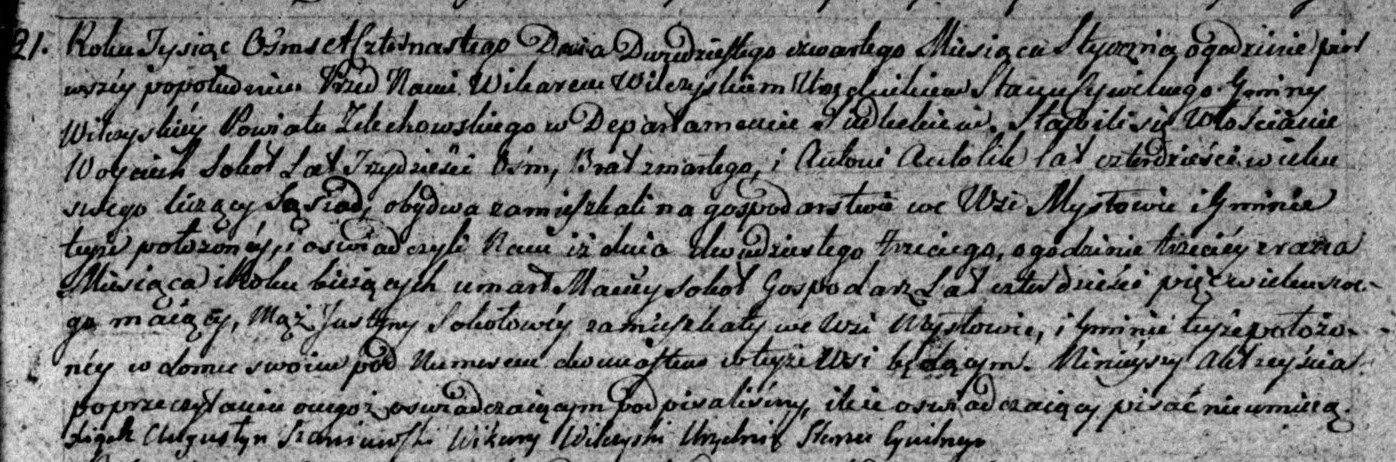 21. Roku Tysiąc Ośmset Czternastego Dnia Dwudziestego czwartego Miesiąca Stycznia o godzinie pier
wszéy popołudniu. Przed Nami Wikarem Wilczyskiem Urzędnikiem Stanu Cywilnego Gminy
Wilczyskiéy Powiatu Zelechowskiego w Departamencie Siedleckim. Stawili się Włościanie
Woyciech Sokoł Lat Trzydzieści Ośm, Brat zmarłego, i Antoni Antolik lat czterdzieści wieku
swego liczący Sąsiad, obydwa zamieszkali na gospodarstwie we Wsi Mysłowie i Gminie
teyże położonéy, i oświadczyli Nam iż dnia dwudziestego trzeciego, o godzinie trzeciéy z rana
Miesiąca i Roku bieżących umarł Maciéy Sokoł Gospodarz Lat czterdzieści pięć wieku swe-
go maiący, Mąż Justyny Sokołowéy zamieszkały we Wsi Mysłowie, i Gminie teyże położo-
néy w domu swoim pod Numerem dwunastem w teyże Wsi będącym. Ninieyszy Akt Zeyścia
po przeczytaniu onegoż oświadczaiącym podpisaliśmy, ile oświadczaiący pisać nieumieią.
Xiądz Augustyn Szaniawski Wikary Wilczyski Urzędnik Stanu Cywilnego